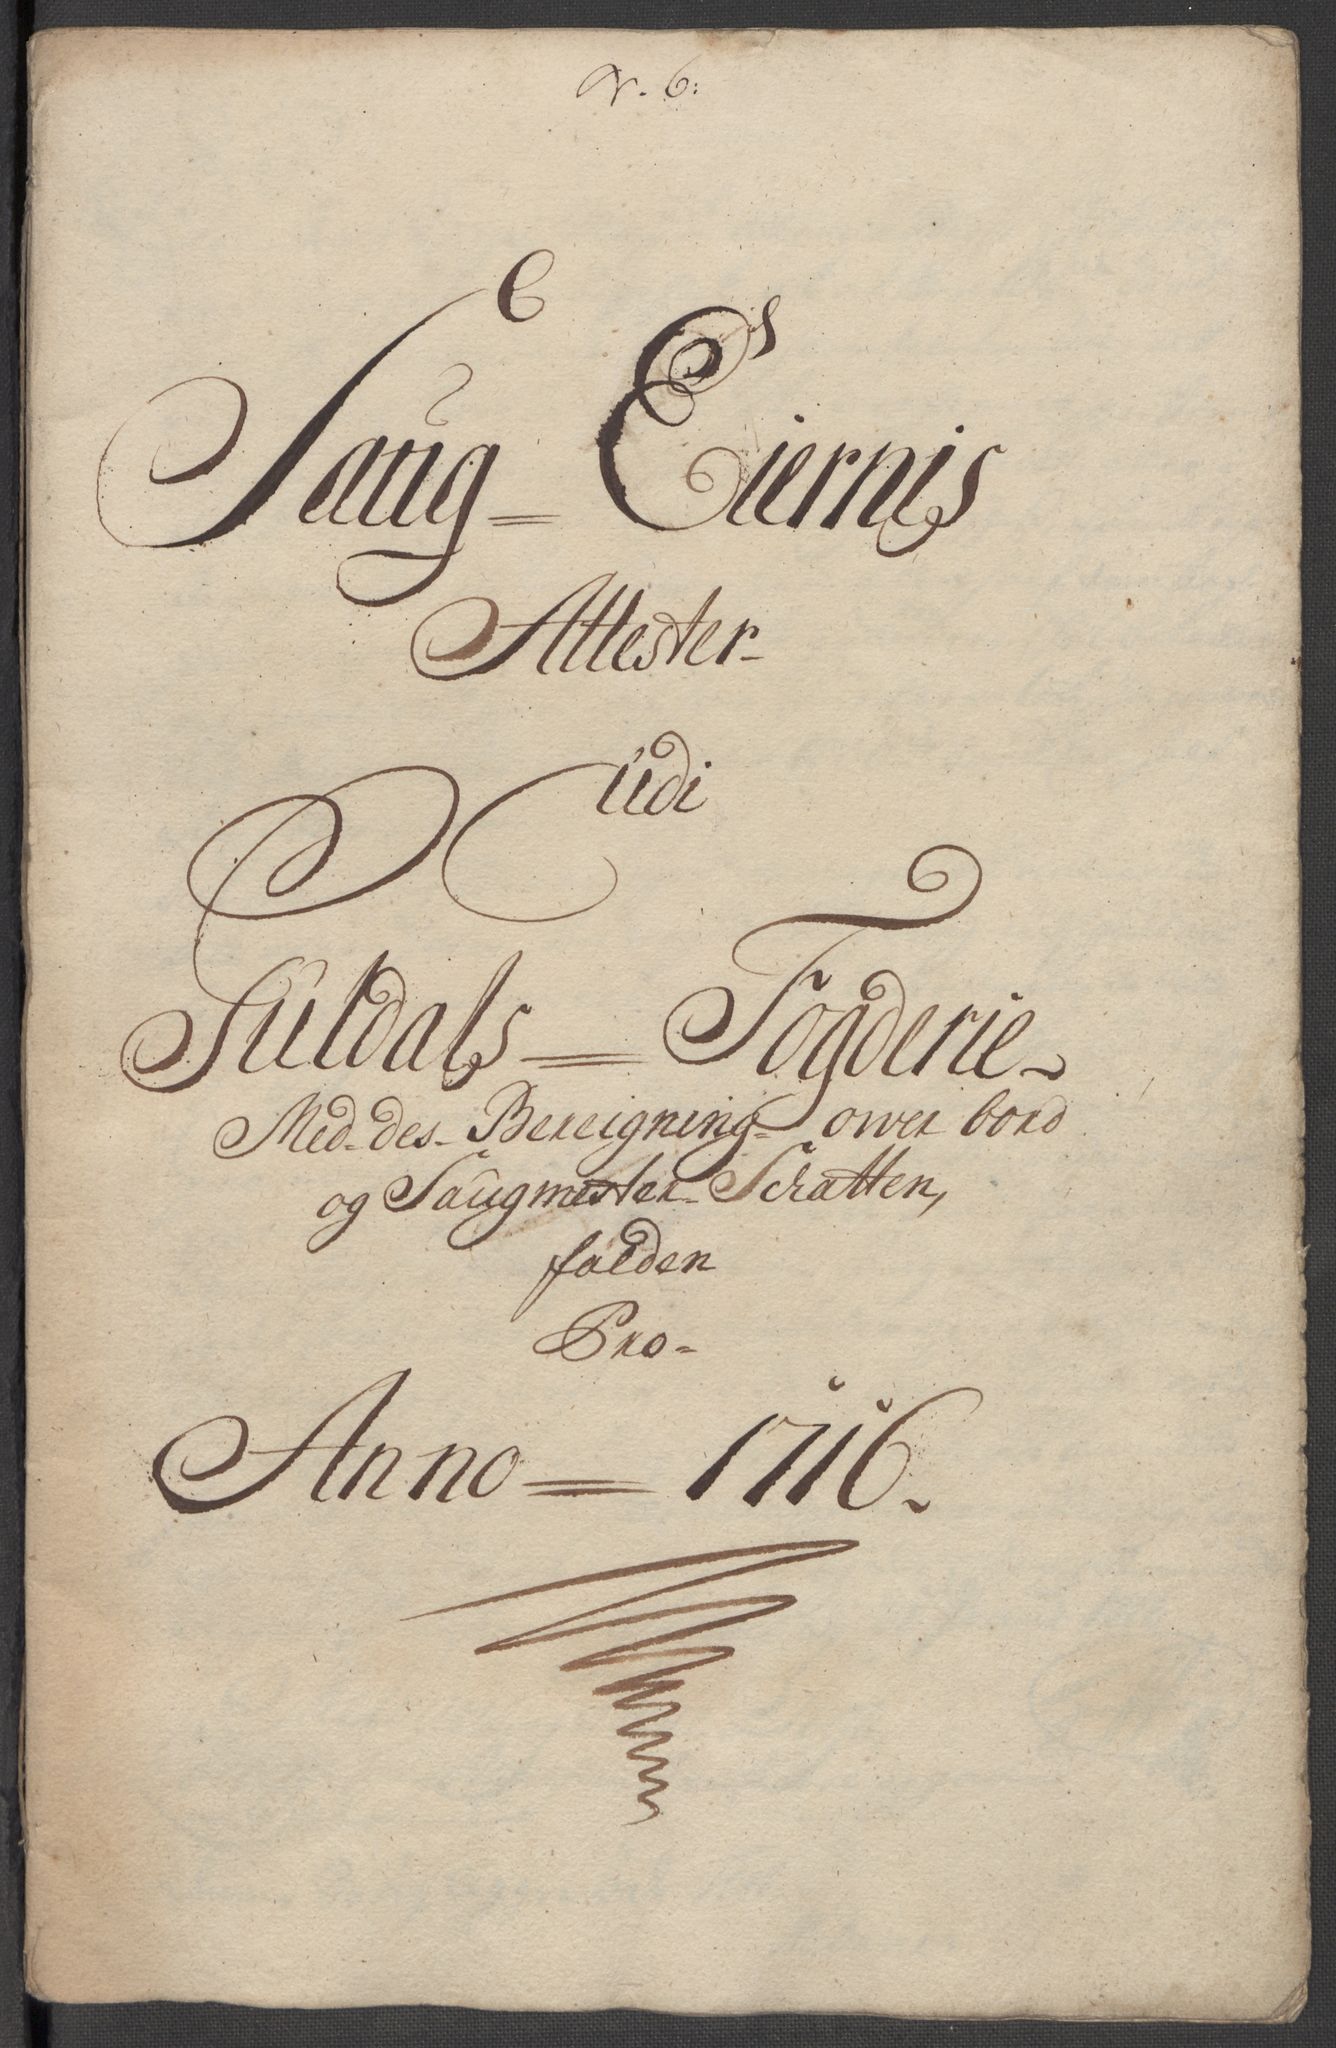 N. 6:
Saug= Eiernis
Attester-
udi
Guldals= Fogderie-
Med- des- Bereigning- over bord
og Saugmester- Schatten,
falden
Pro-
Anno= 1716.